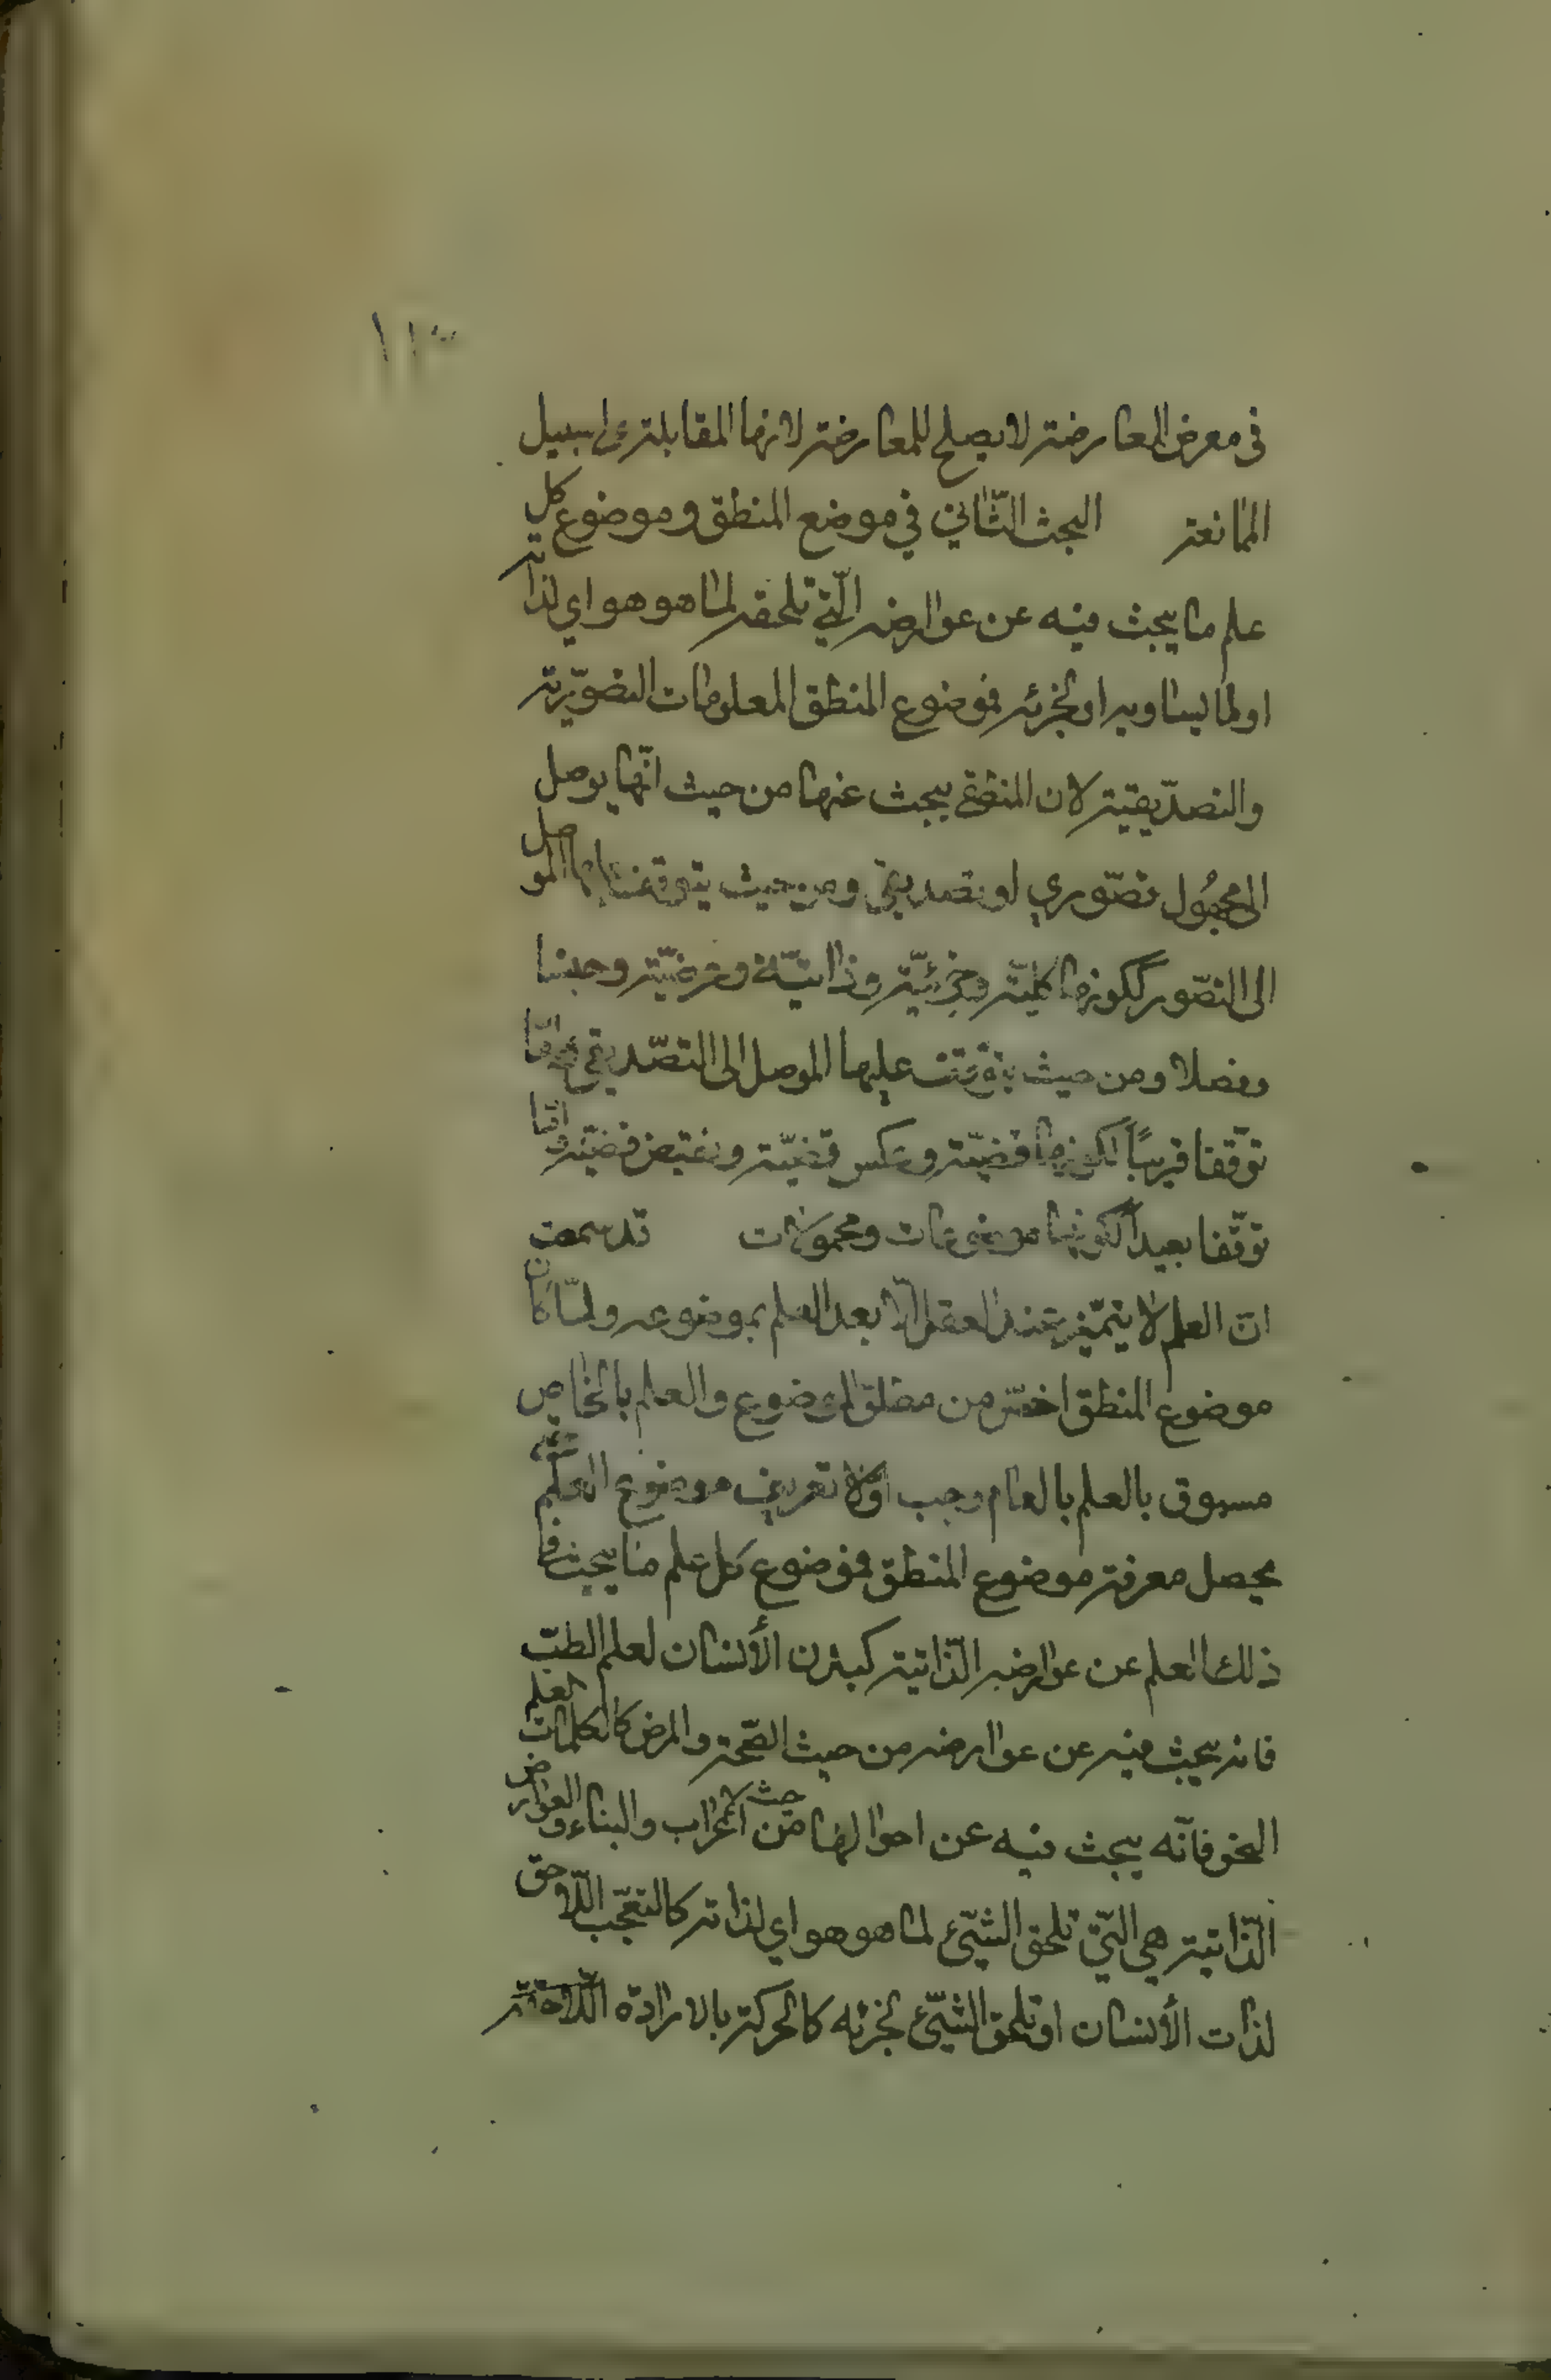 في معرض المعارضة لا يصلح للمعارضة لانها المقابلة على سبيل
الممانعة البحث الثّاني في موضع المنطق وموضوع كل
علم ما يبحث فيه عن عوارضه الّتي تلحقه لما هو هو اي لذاته
او لما يساويه او لجزئه فموضوع المنطق المعلومات التصوّرية
والتصدّيقية لان المنطقي يبحث عنها من حيث انّها يوصل
الى مجهُول تصّوري او تصديقي ومن حيث يتوقف عليها الموصل
الى التصّور ككونها كلّية وجزئيّة وذاتيّة وعرضيّة وجنسا
وفصلا ومن حيث يتوقف عليها الموصل الى التصّديق امّا
توقّفا قريبًا ككونها قضيّة وعكس قضيّة ونقيض قضيّة وامّا
توقّفا بعيداً ككونها موضوعات ومحمولات قد سمعت
انّ العلم لا يتميّز عند العقل الّا بعد العلم بموضوعه ولمّا كان
موضوع المنطق اخصّ من مطلق الموضوع والعلم بالخاص
مسبوق بالعلم بالعام وجب اولا تعريف موضوع العلم حتّى
يحصل معرفة موضوع المنطق فموضوع كل علم ما يبحث في
ذلك العلم عن عوارضه الذّاتية كبدن الأنسان لعلم الطبّ
فانه يبحث فيه عن عوارضه من حيث الصّحة والمرض كالكلمات لعلم
النحو فانّه يبحث فيه عن احوالها من حيث الاعراب والبناء والعوارض
الّذاتية هي الّتي تلحق الشّيئ لما هو هو اي لذاته كالتعجّب اللّاحق
لذات الأنسان او تلحق الشّيئ لجزئه كالحركة بالارادة اللّاحقة